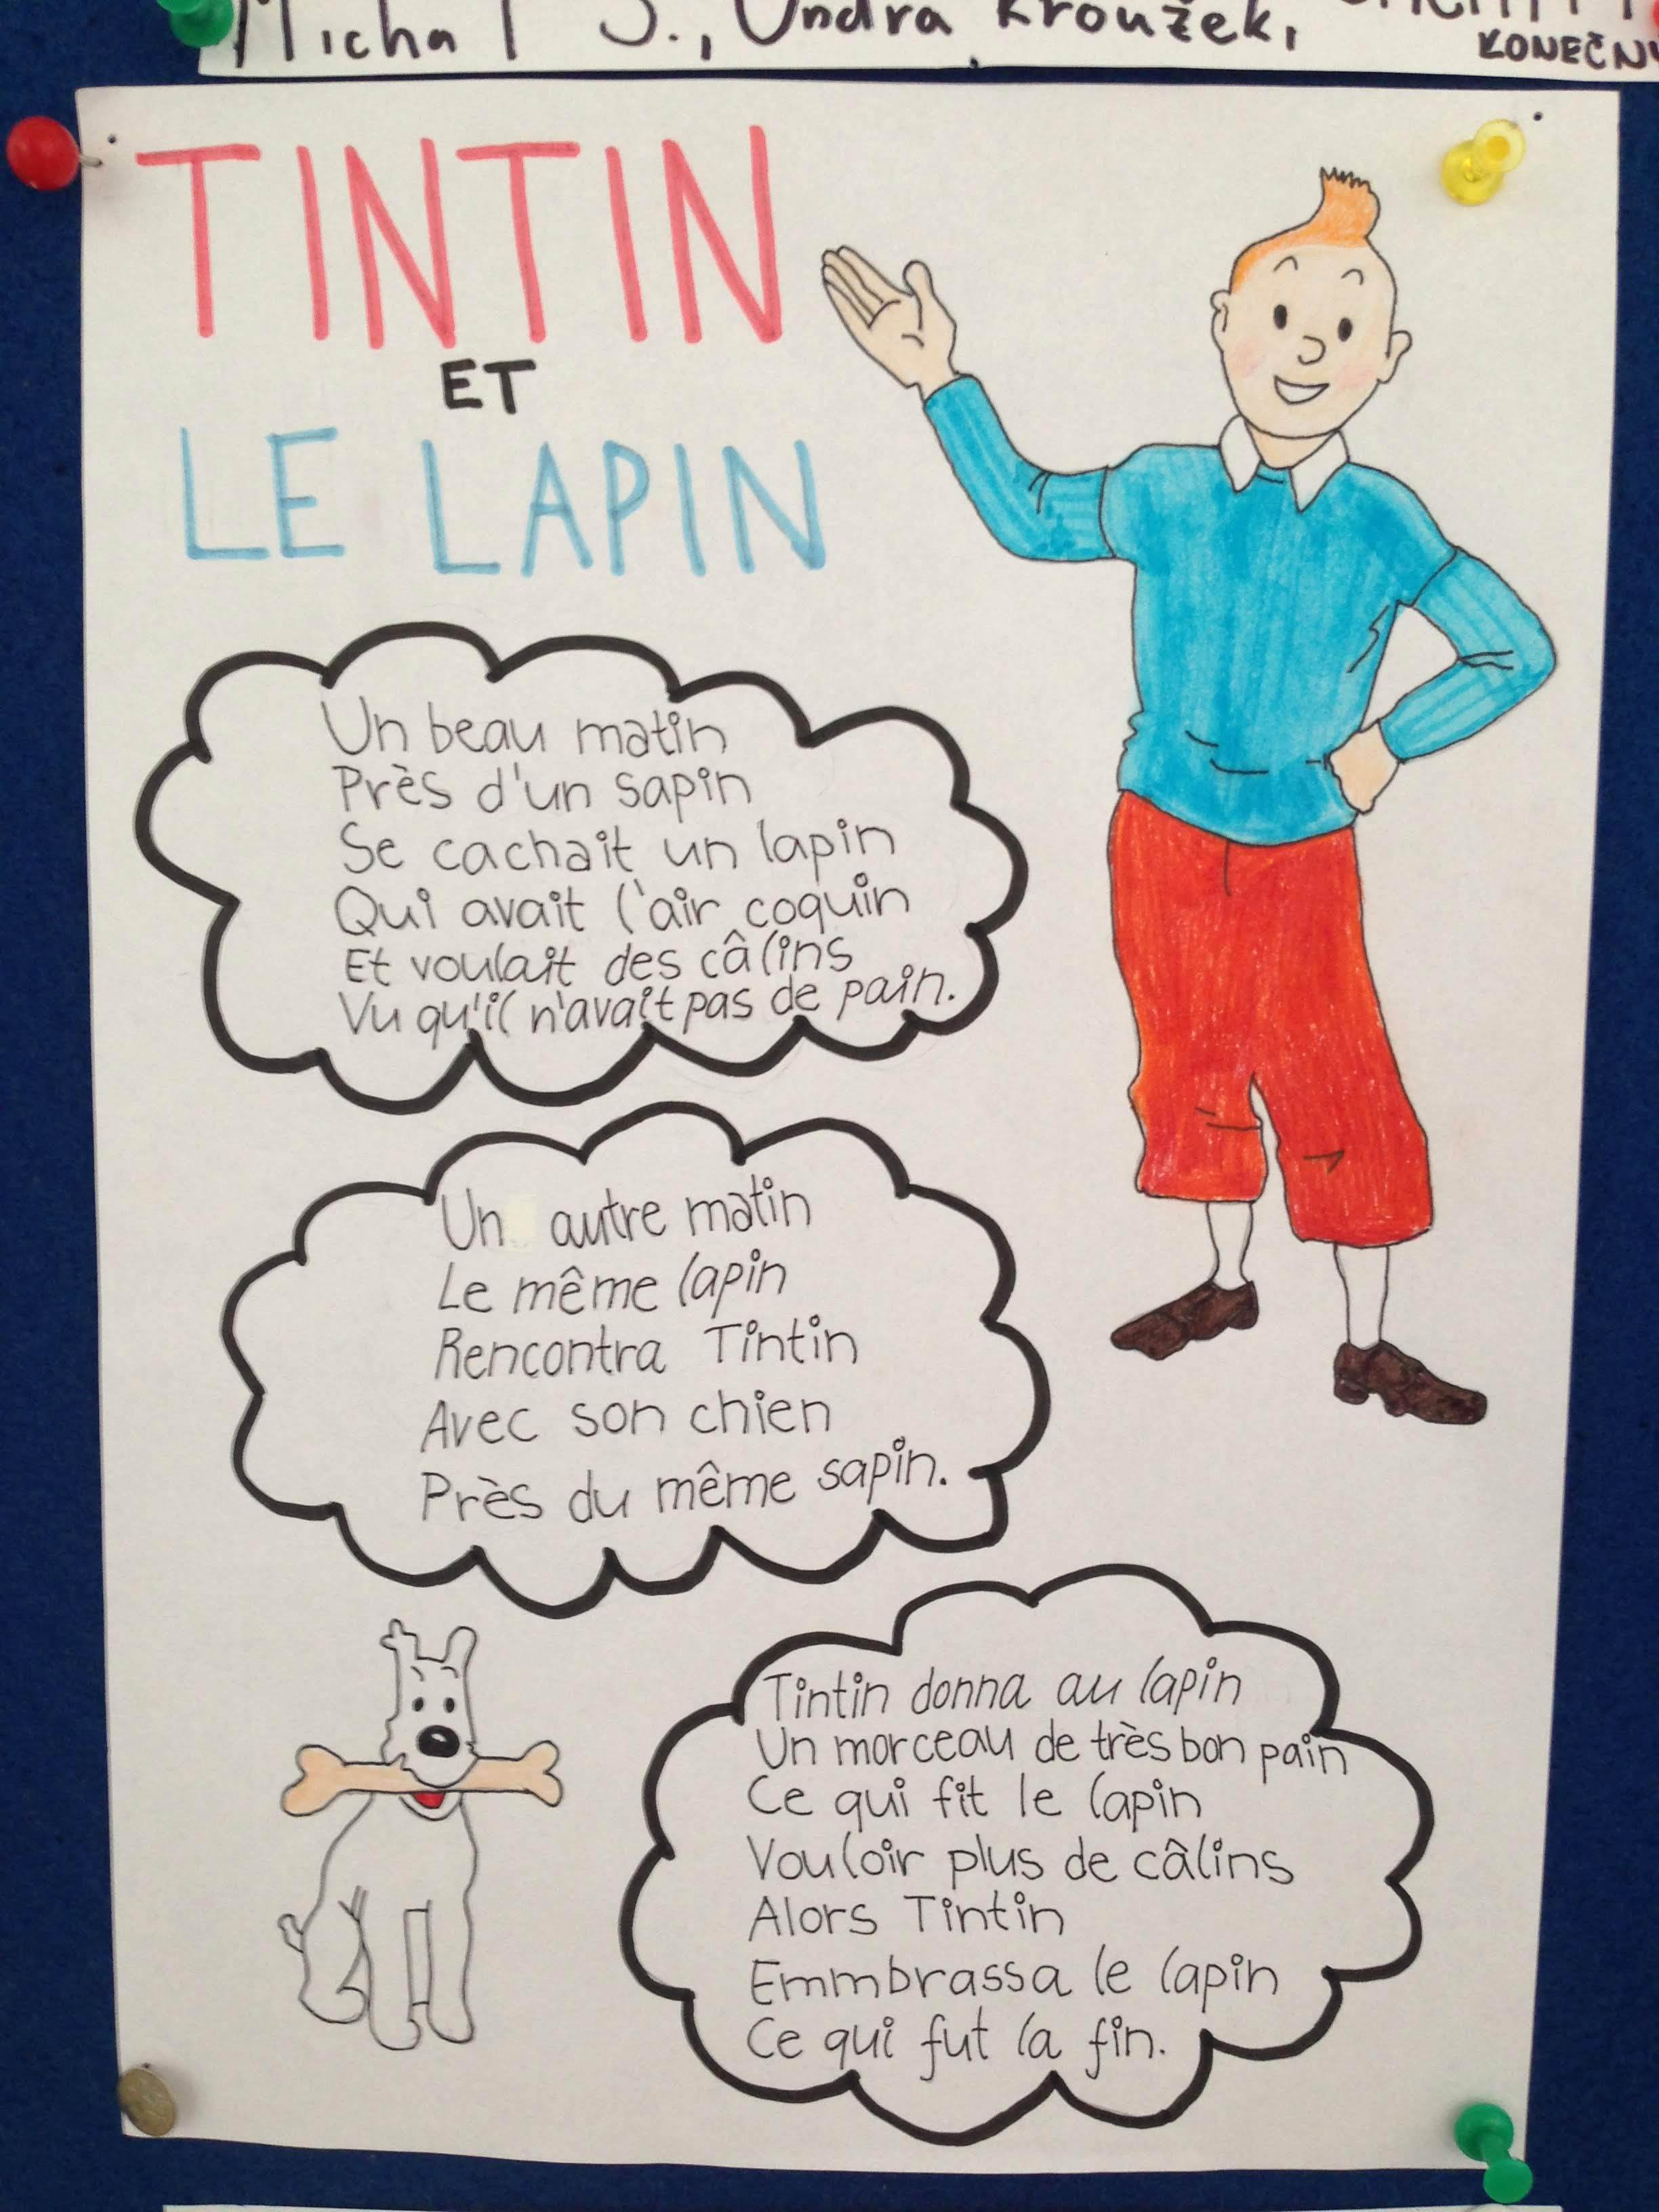 Michal J., Ondra Kroužek,
KONEČN
TINTIN
ET
LE LAPIN
Un beau matin
Près d'un sapin
Se cachait un lapin
Qui avait l'air coquin
Et voulait des câlins
Vu qu'il n'avait pas de pain.
Un autre matin
Le même lapin
Rencontra Tintin
Avec son chien
Près du même sapin.
Tintin donna au lapin
Un morceau de très bon pain
Ce qui fit le lapin
Vouloir plus de câlins
Alors Tintin
Emmbrassa le lapin
Ce qui fut la fin.